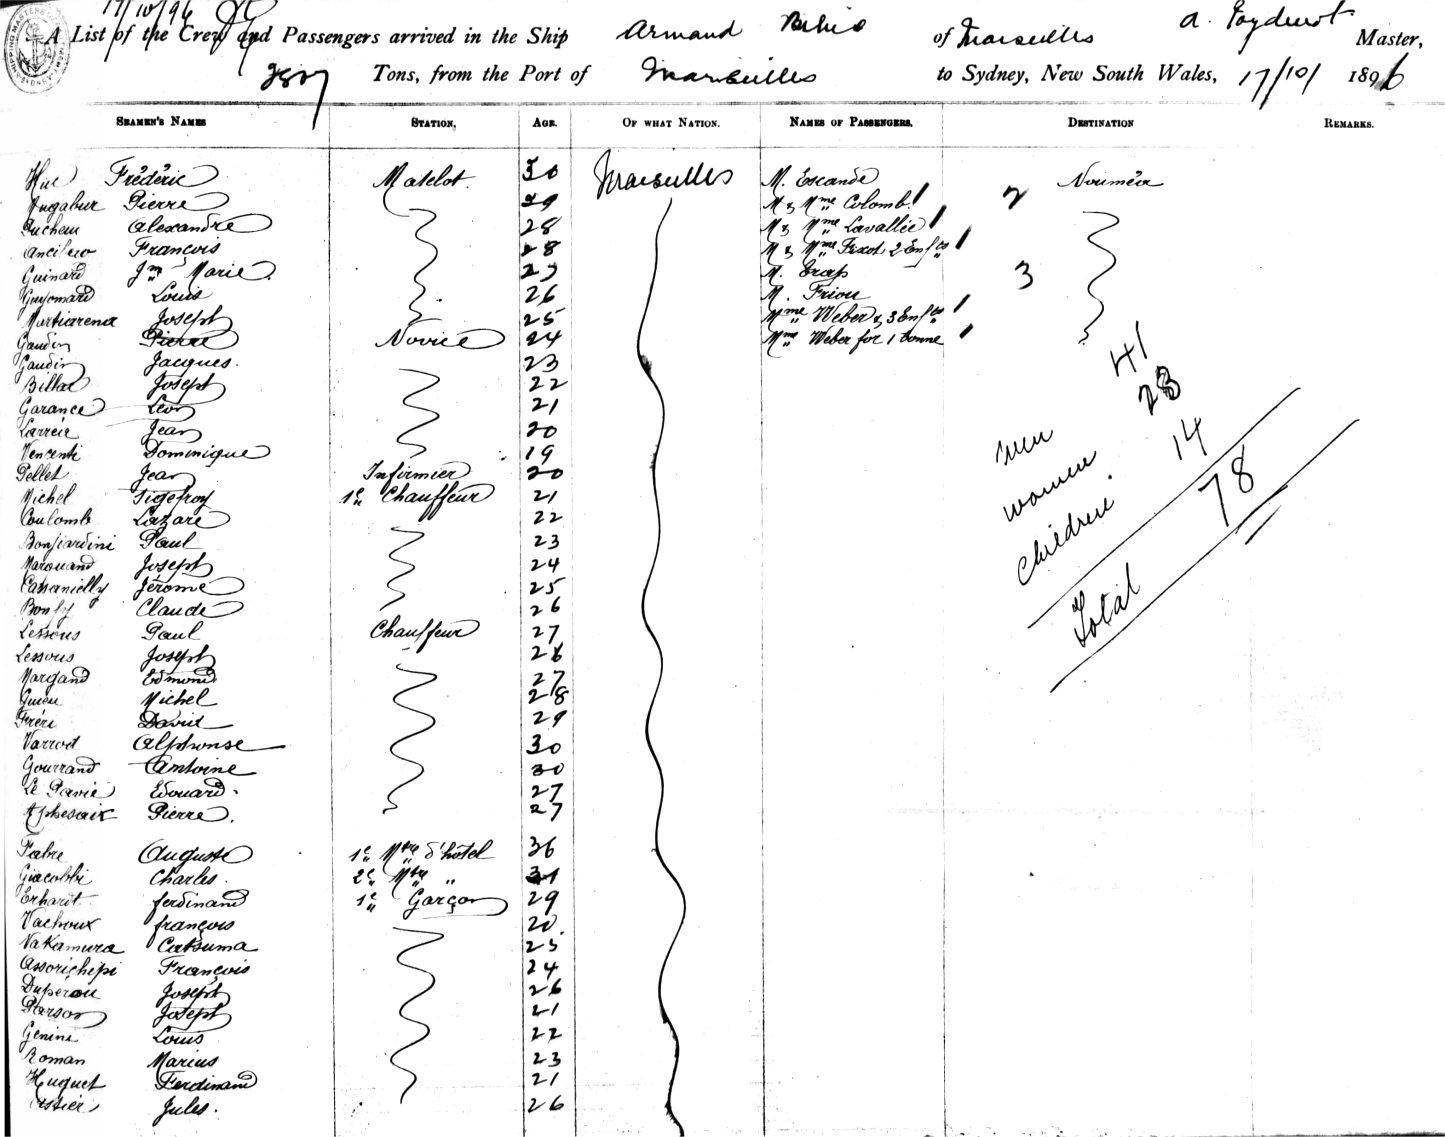 17/10/96
A List of the Crew and Passengers arrived in the Ship Armand Béhic of Marseilles A. Master,
Tons, from the Port of Marseilles to Sydney, New South Wales, 17/10/ 1896
SEAMEN'S NAMES STATION, AGE. OF WHAT NATION. NAMES OF PASSENGERS. DESTINATION REMARKS.
Frédéric Matelot. 30 Marseilles M. Escande Nouméa
Pierre 29 M & Mme Colomb 2
Alexandre 28 M & Mme Lavallée
François 28 M & Mme Fixot 2 Enfts
Guinard Jn Marie. 27 M. 3
Guyomard Louis 26 M. Friou
Martiarena Joseph 25 Mme Weber & 3 Enfts
Gaudin Pierre Novice 24 Mme Weber for 1 bonne
Gaudin Jacques. 23
Joseph 22
Garance Léon 21
Larreie Jean 20
Vencenti Dominique 19
Pellet Jean Infirmier 20
Michel Sigefroy 1e Chauffeur 21
Coulomb Lazare 22
Bonfiardini Paul 23
Marouand Joseph 24
Cassanielly Jérome 25
Bonfy Claude 26
Lessous Paul Chauffeur 27
Lessous Joseph 28
Margand Edmond 27
Michel 28
David 29
Varrot Alphonse 30
Gourrand Antoine 30
Le Pavie Edouard. 27
Pierre. 27
Fabre Auguste 1e Mtre d'hotel 36
Giacobbi Charles. 2e Mtre " 31
Erhardt ferdinand 1e Garçon 29
Vachoux françois 20.
Nakamura Catsuma 25
Assorichipi François 24
Duperou Joseph 26
Parson Joseph 21
Genini Louis 22
Roman Marius 23
Huguet Ferdinand 21
Assier Jules. 26
men 41
women 23
children 14
Total 78